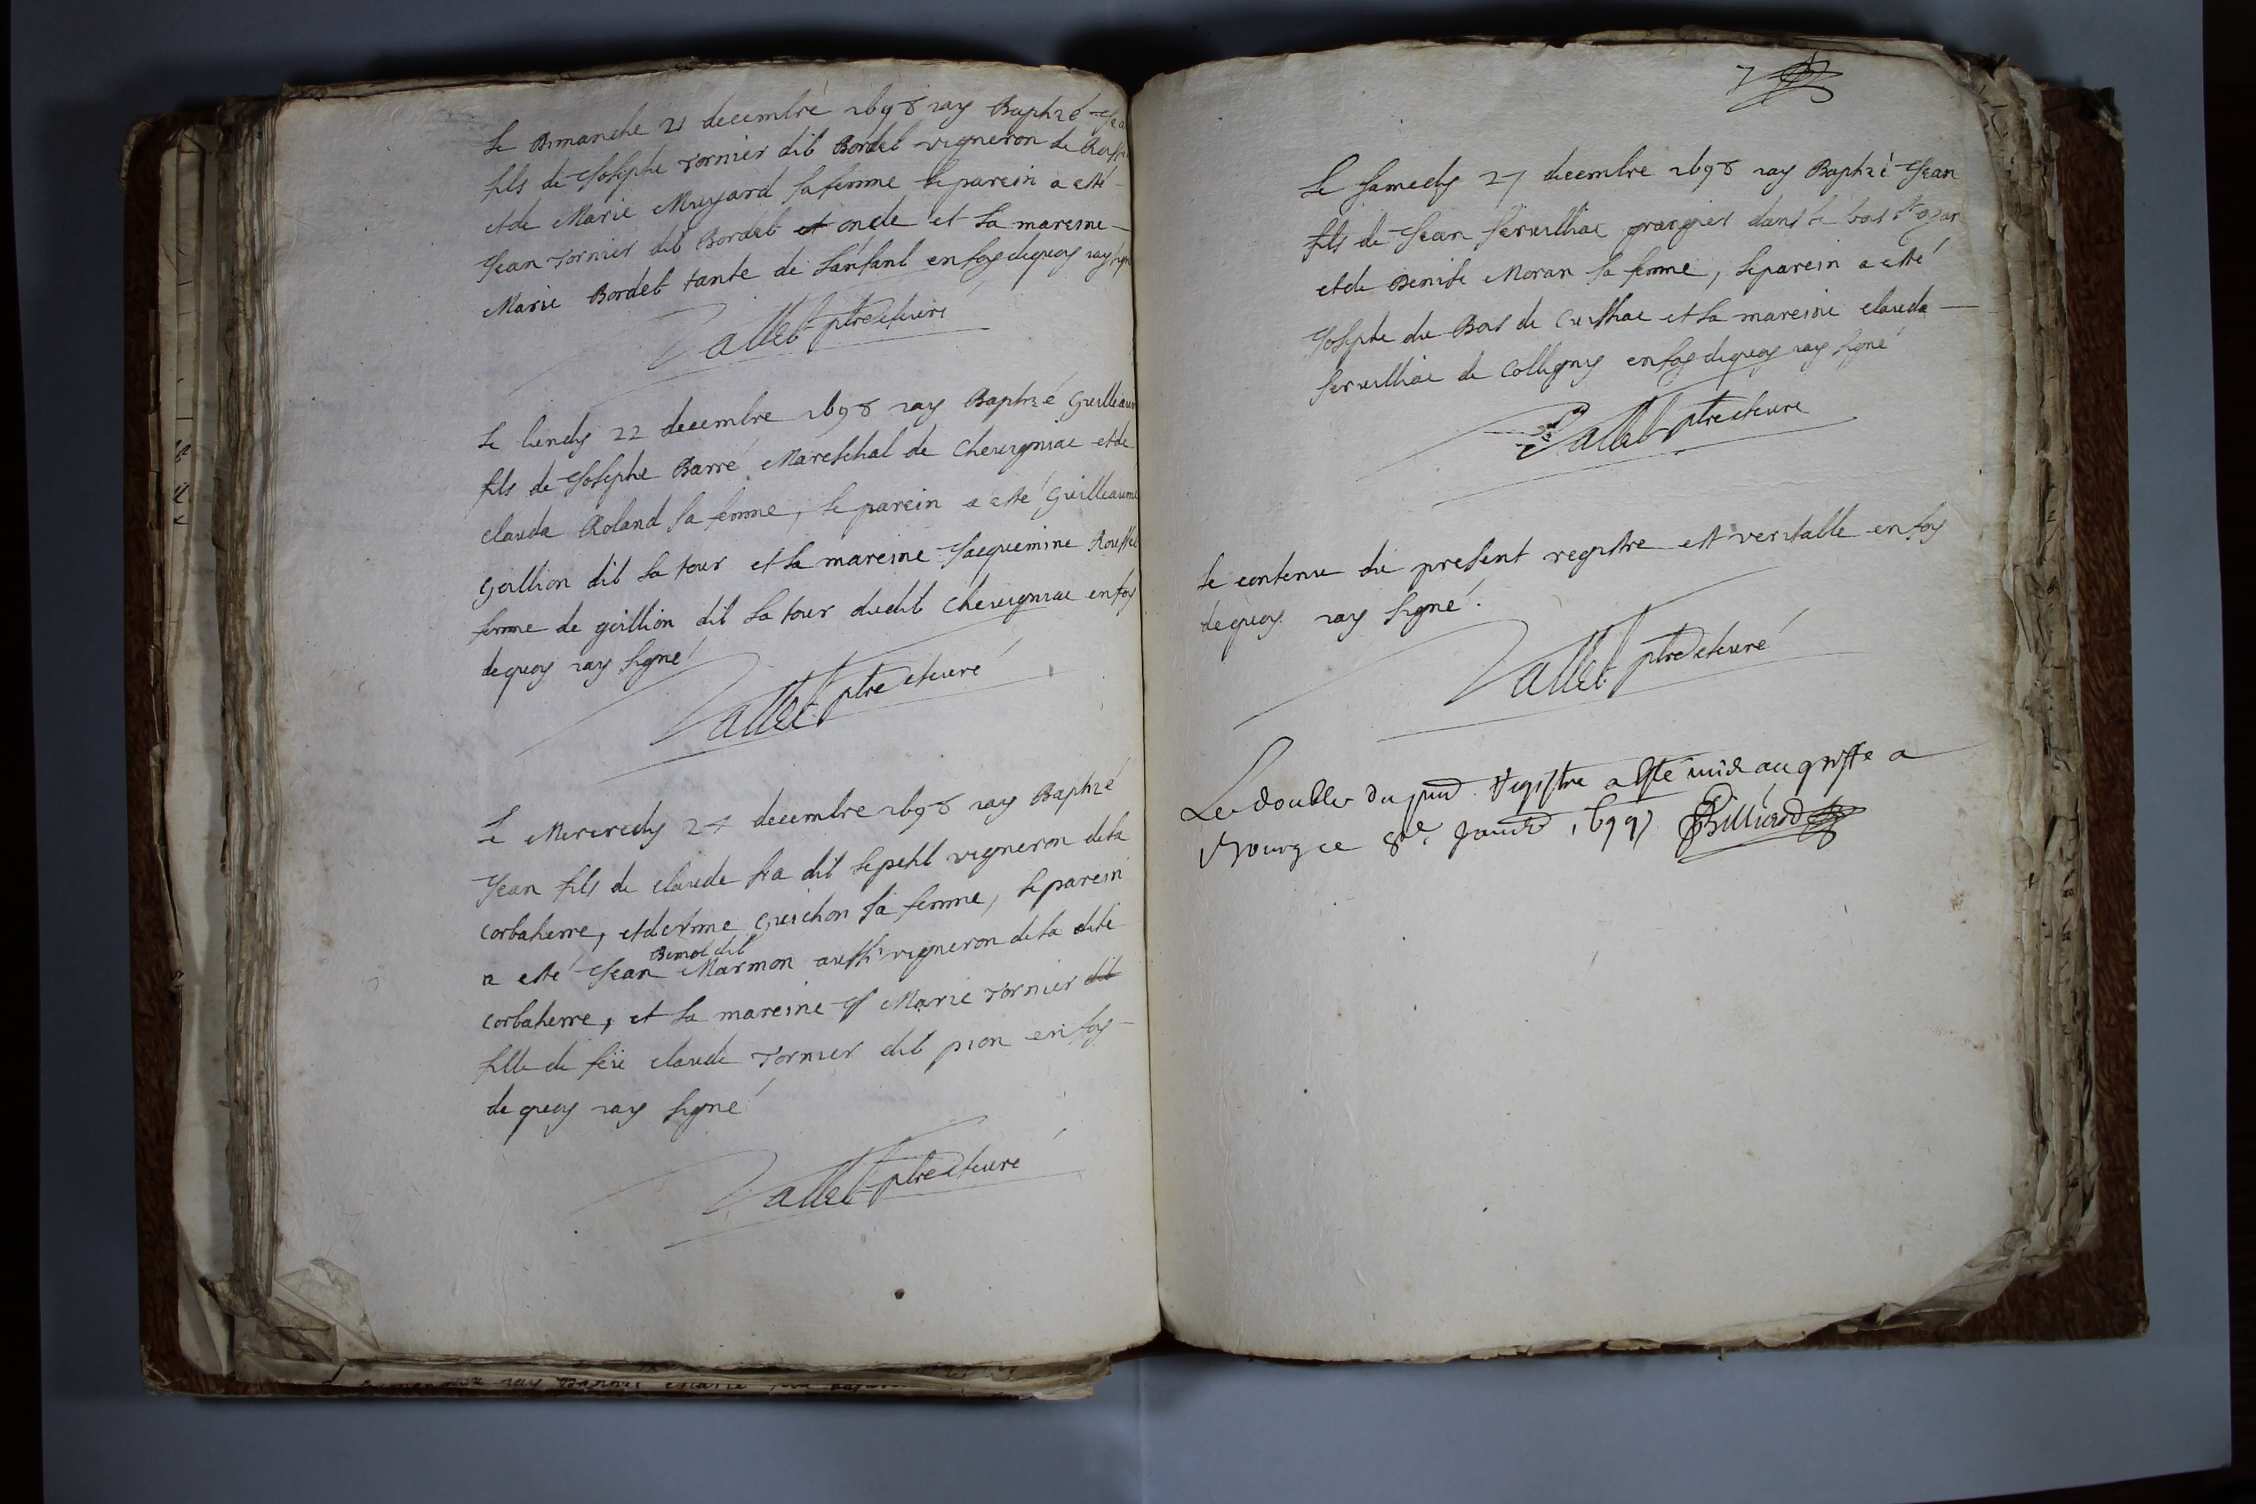 Le Dimanche 21 decembre 1698 iay Baptizé Jean
fils de Josephe Tornier dit Bordet vigneron de
et de Marie Muyard sa femme le parein a esté
Jean Tornier dit Bordet et oncle et la mareine
Marie Bordet tante de l'anfant en foy dequoy iay signé
Vallet ptre et curé
Le lundy 22 decembre 1698 iay Baptizé Guilleaume
fils de Josephe Barré Mareschal de Chevigniac et de
clauda Roland sa femme, le parein a esté Guilleaume
Goillion dit la tour et la mareine Jacquemine Roussel
femme de goillion dit la tour dudit Chevigniac en foy
dequoy iay signé
Vallet ptre et curé
Le Mercredy 24 decembre 1698 iay Baptizé
Jean fils de claude dit le petit vigneron de la
corbatiere, et de erme Guichon sa femme, le parein
a esté Jean Benoit dit Marmon aussi vigneron de la dite
corbatiere, et la mareine Marie Tornier dit
fille de feü claude Tornier dit pion en foy
de quoy iay signé
Vallet ptre et curé
7
Le Samedy 27 decembre 1698 iay Baptizé Jean
fils de Jean servilliac grangier dans le bois
et de Benoite Moran sa femme, le parein a esté
Josephe du Bois de Cuissiac et la mareine clauda
servilliac de Colligny en foy dequoy iay signé
Vallet ptre et curé
Le contenu du present registre est veritable en foy
de quoy iay signé.
Vallet ptre et curé
Le double du pnt Registre a esté mis au greffe a
Bourg ce 8e Janvier 1699 Billiard